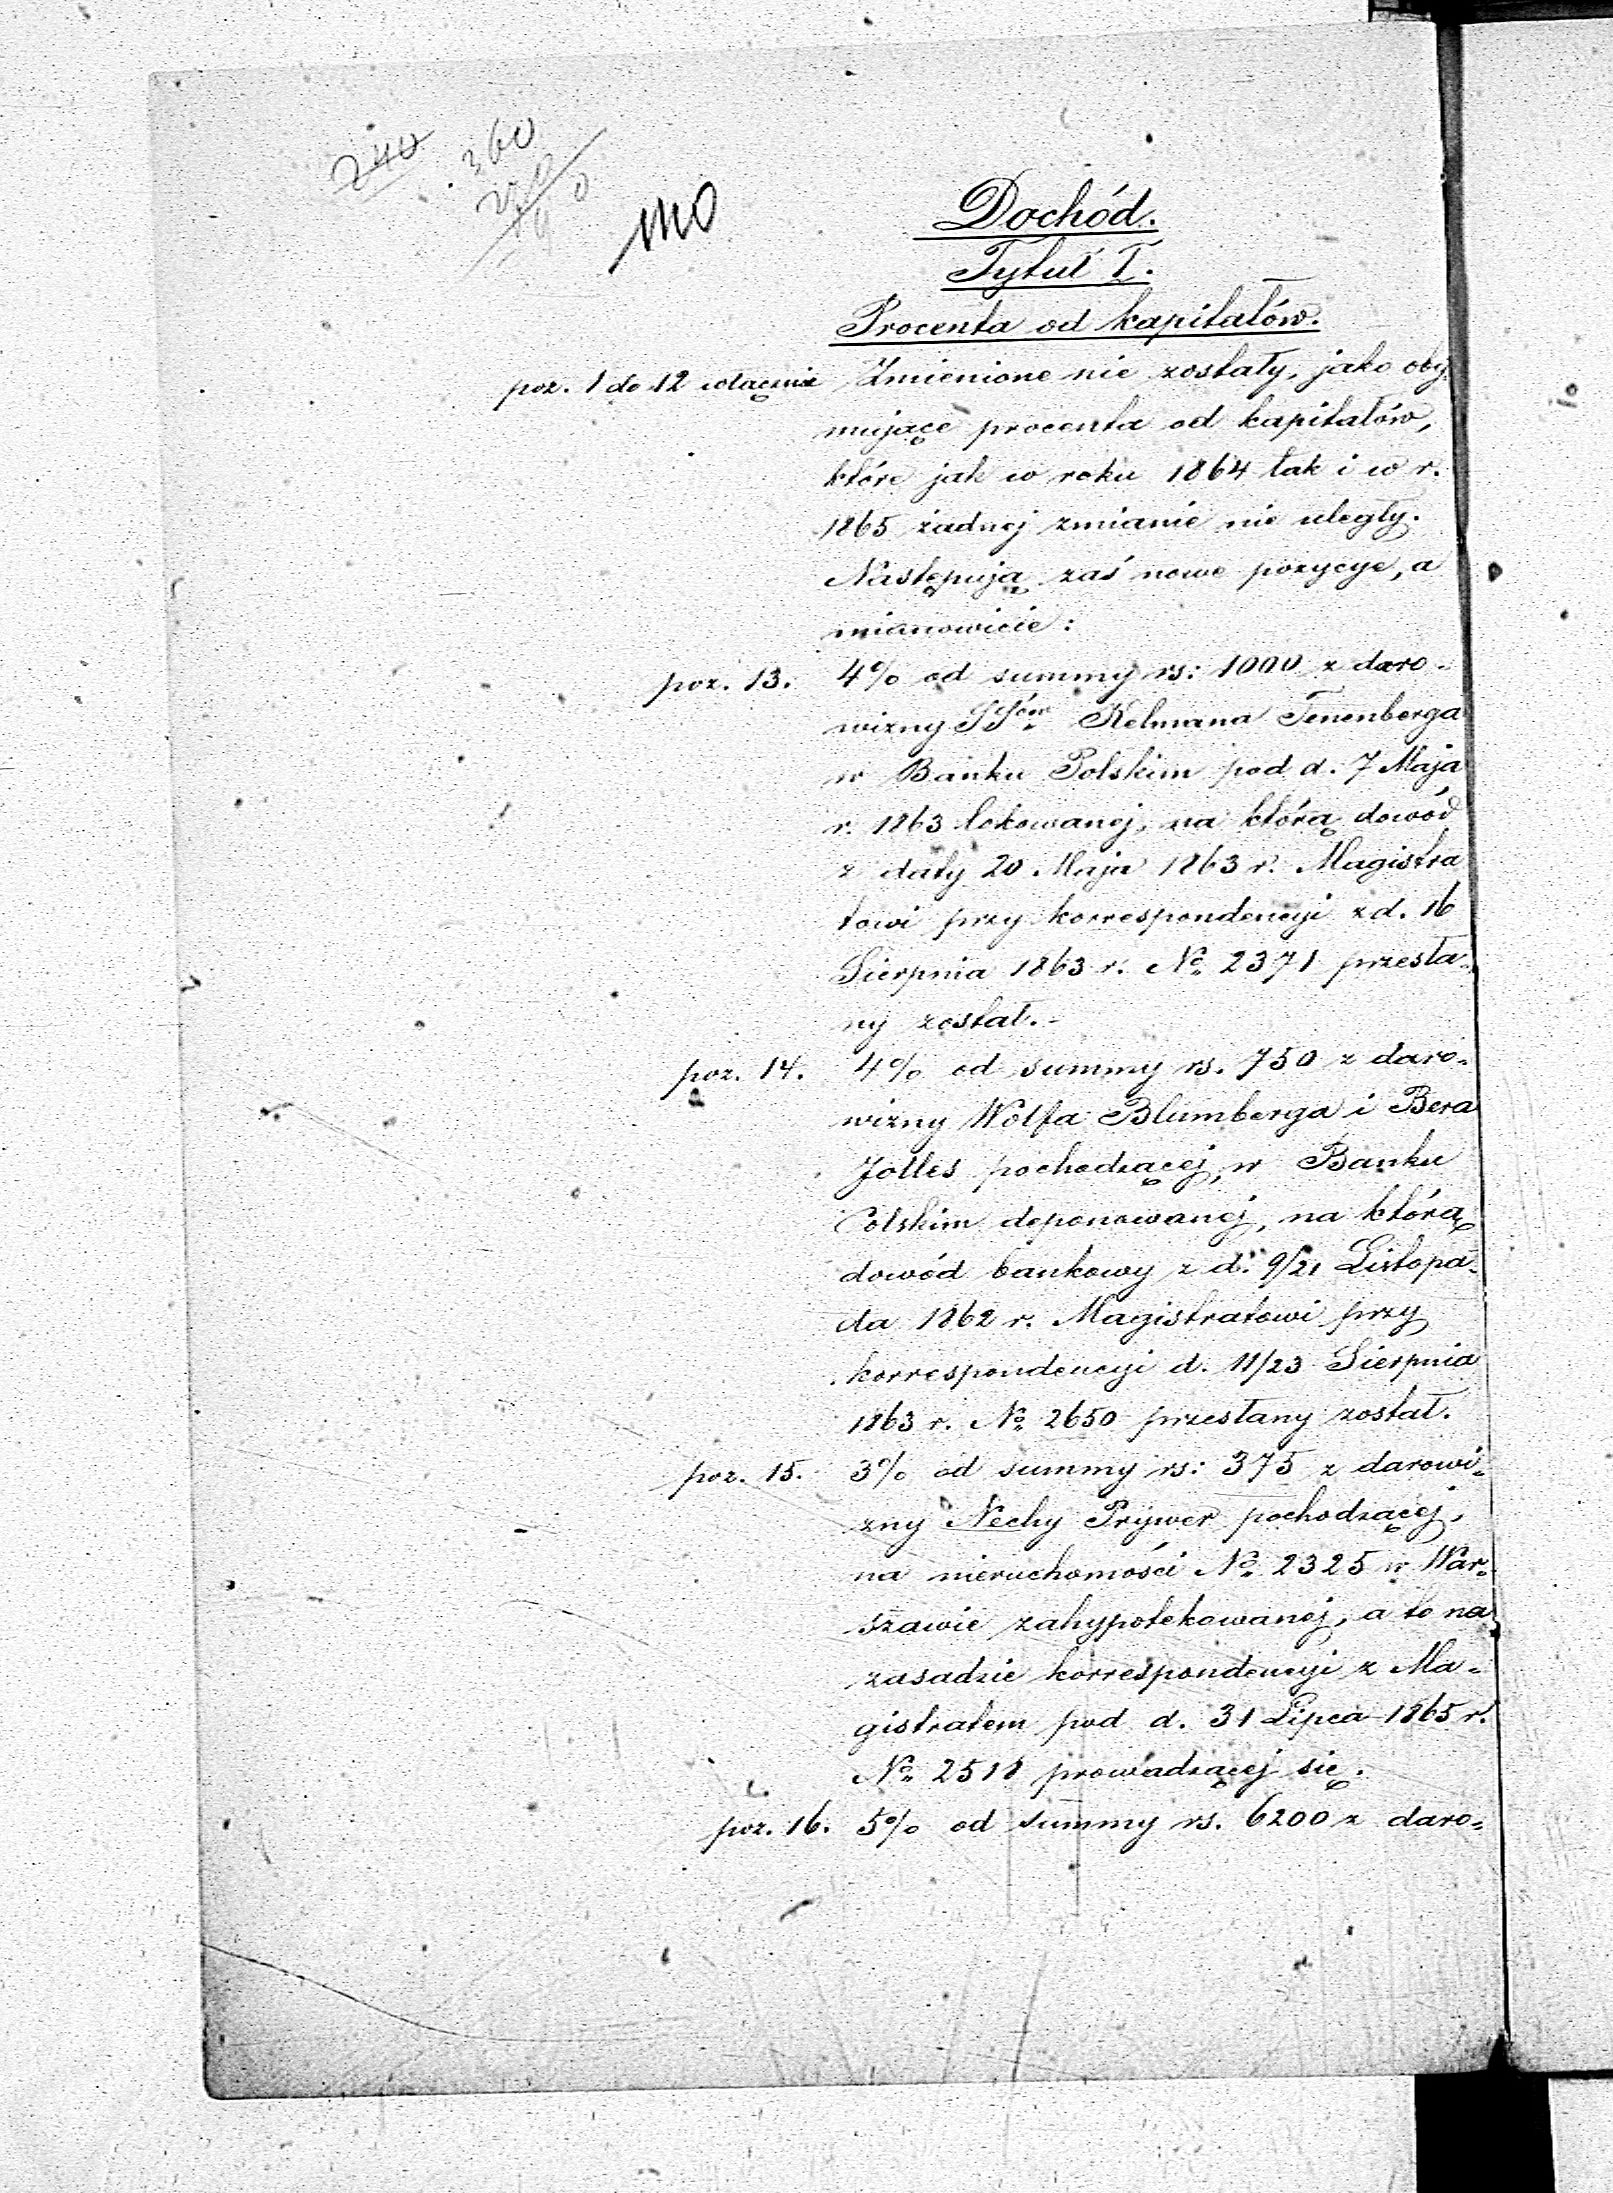 240 360
Dochód.
Tytuł I.
Procenta od kapitałów.
poz. 1 do 12 włącznie Zmienione nie zostały, jako oby-
mujące procenta od kapitałów,
które jak w roku 1864 tak i w r.
1865 żadnej zmianie nie uległy.
Następują zaś nowe pozycye, a
mianowicie:
poz. 13. 4% od summy rs: 1000 z daro-
wizny SSów Kelmana Tenenberga
w Banku Polskim pod d. 7 Maja
r. 1863 lokowanej, na którą dowód
z daty 20 Maja 1863 r. Magistra
towi przy korrespondencyi z d. 16
Sierpnia 1863 r. No 2371 przesła-
ny został.-
poz. 14. 4% od summy rs. 750 z daro-
wizny Wolfa Blumberga i Bera
Jolles pochodzącej, w Banku
Polskim deponowanej, na którą
dowód bankowy z d. 9/21 Listopa-
da 1862 r. Magistratowi przy
korrespondencyi d. 11/23 Sierpnia
1863 r. No 2650 przesłany został.
poz. 15. 3% od summy rs: 375 z darowi-
zny Nechy Prywer pochodzącej,
na nieruchomości No 2325 w War-
szawie zahypotekowanej, a to na
zasadzie korrespondencyi z Ma-
gistratem pod d. 31 Lipca 1865 r.
No 2518 prowadzącej się.
poz. 16. 5% od summy rs. 6200 z daro-